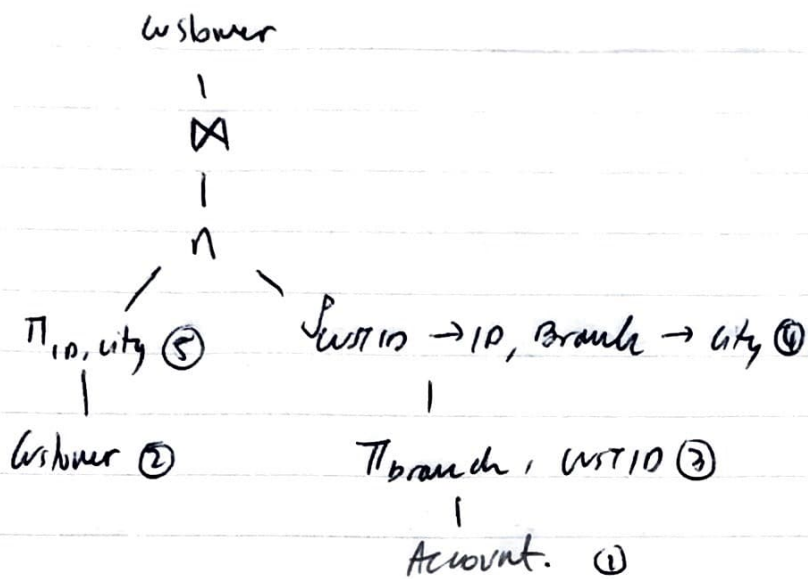 Customer
⋈
∩
π ID, city ⑤ ρ CUSTID → ID, Branch → city ④
Customer ② π branch, CUSTID ③
Account. ①